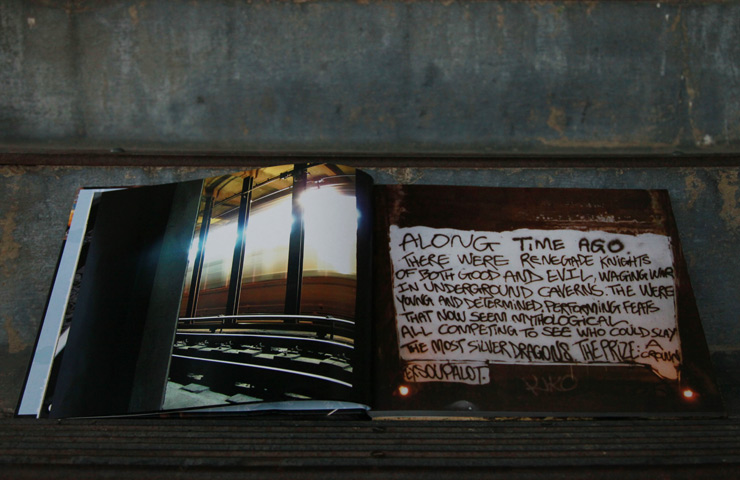 ALONG TIME AGO
THERE WERE RENEGADE KNIGHTS
OF BOTH GOOD AND EVIL, WAGING WAR
IN UNDERGROUND CAVERNS. THE WERE
YOUNG AND DETERMINED PERFORMING FEATS
THAT NOW SEEM MYTHOLOGICAL
ALL COMPETING TO SEE WHO COULD SLAY
THE MOST SILVER DRAGONS. THE PRIZE: A
CROWN